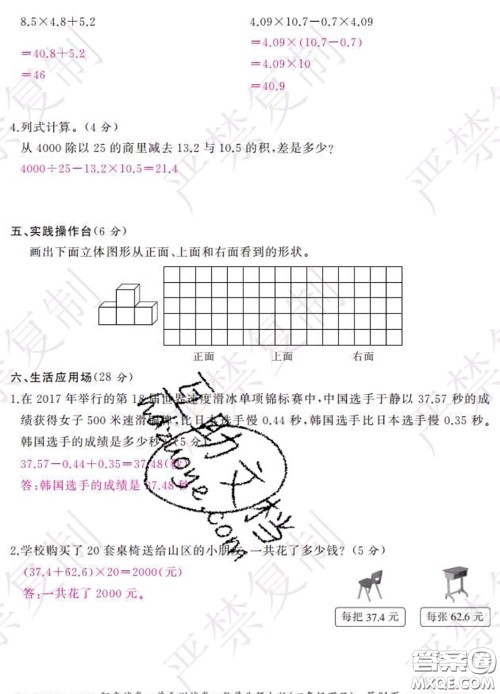 8.5×4.8+5.2 4.09×10.7-0.7×4.09
=40.8+5.2 =4.09×(10.7-0.7)
=46 =4.09×10
=40.9
4.列式计算。(4分)
从4000除以25的商里减去13.2与10.5的积,差是多少?
4000÷25-13.2×10.5=21.4
五、实践操作台(6分)
画出下面立体图形从正面、上面和右面看到的形状。
正面 上面 右面
六、生活应用场(28分)
1.在2017年举行的第18届世界速度滑冰单项锦标赛中,中国选手于静以37.57秒的成
绩获得女子500米速滑铜牌,比日本选手慢0.44秒,韩国选手比日本选手慢0.35秒。
韩国选手的成绩是多少秒?(5分)
37.57-0.44+0.35=37.48(秒)
答:韩国选手的成绩是37.48秒。
2.学校购买了20套桌椅送给山区的小朋友,一共花了多少钱?(5分)
(37.4+62.6)×20=2000(元)
答:一共花了2000元。
每把37.4元 每张62.6元
严禁复制
严禁复制
严禁复制
严禁复制
答案圈
MXQE.COM